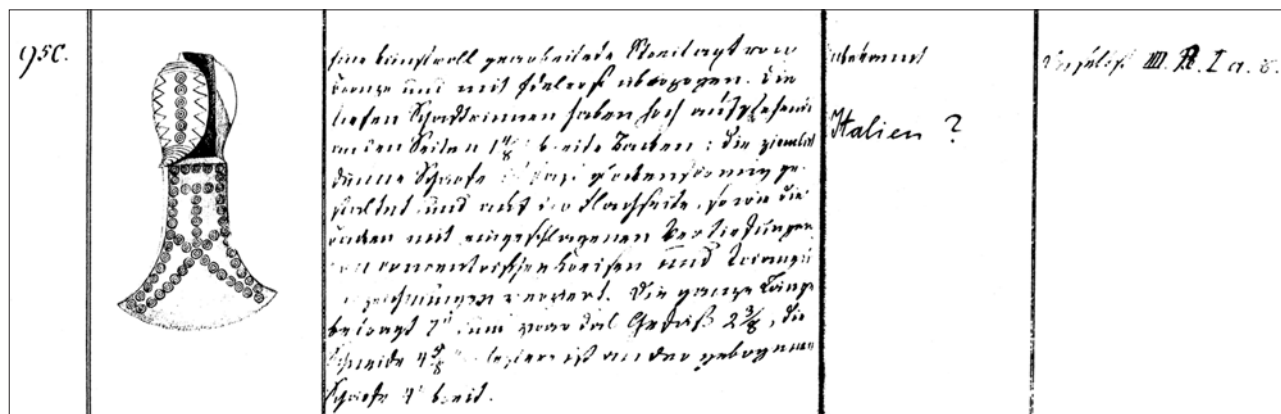 95C.
Eine kunstvoll gearbeitete Streitaxt von
Bronze und mit Edelrost überzogen. Die
tiefen Schaftrinnen haben hoch aufstehende
an den Seiten 1 4/8" breite Backen; die ziemlich
dünne Schärfe ist glockenförmig ge-
staltet und auf der Flachseite, sowie die
Backen mit eingeschlagenen Vertiefungen
von concentrischen Kreisen und
verziert. Die ganze Länge
beträgt 7" und zwar das Gefäß 2 3/8, die
Schneide 4 5/8" letztere ist an der gebogenen
Schärfe 4" breit.
unbekannt
Italien ?
III. R. I a. 6.